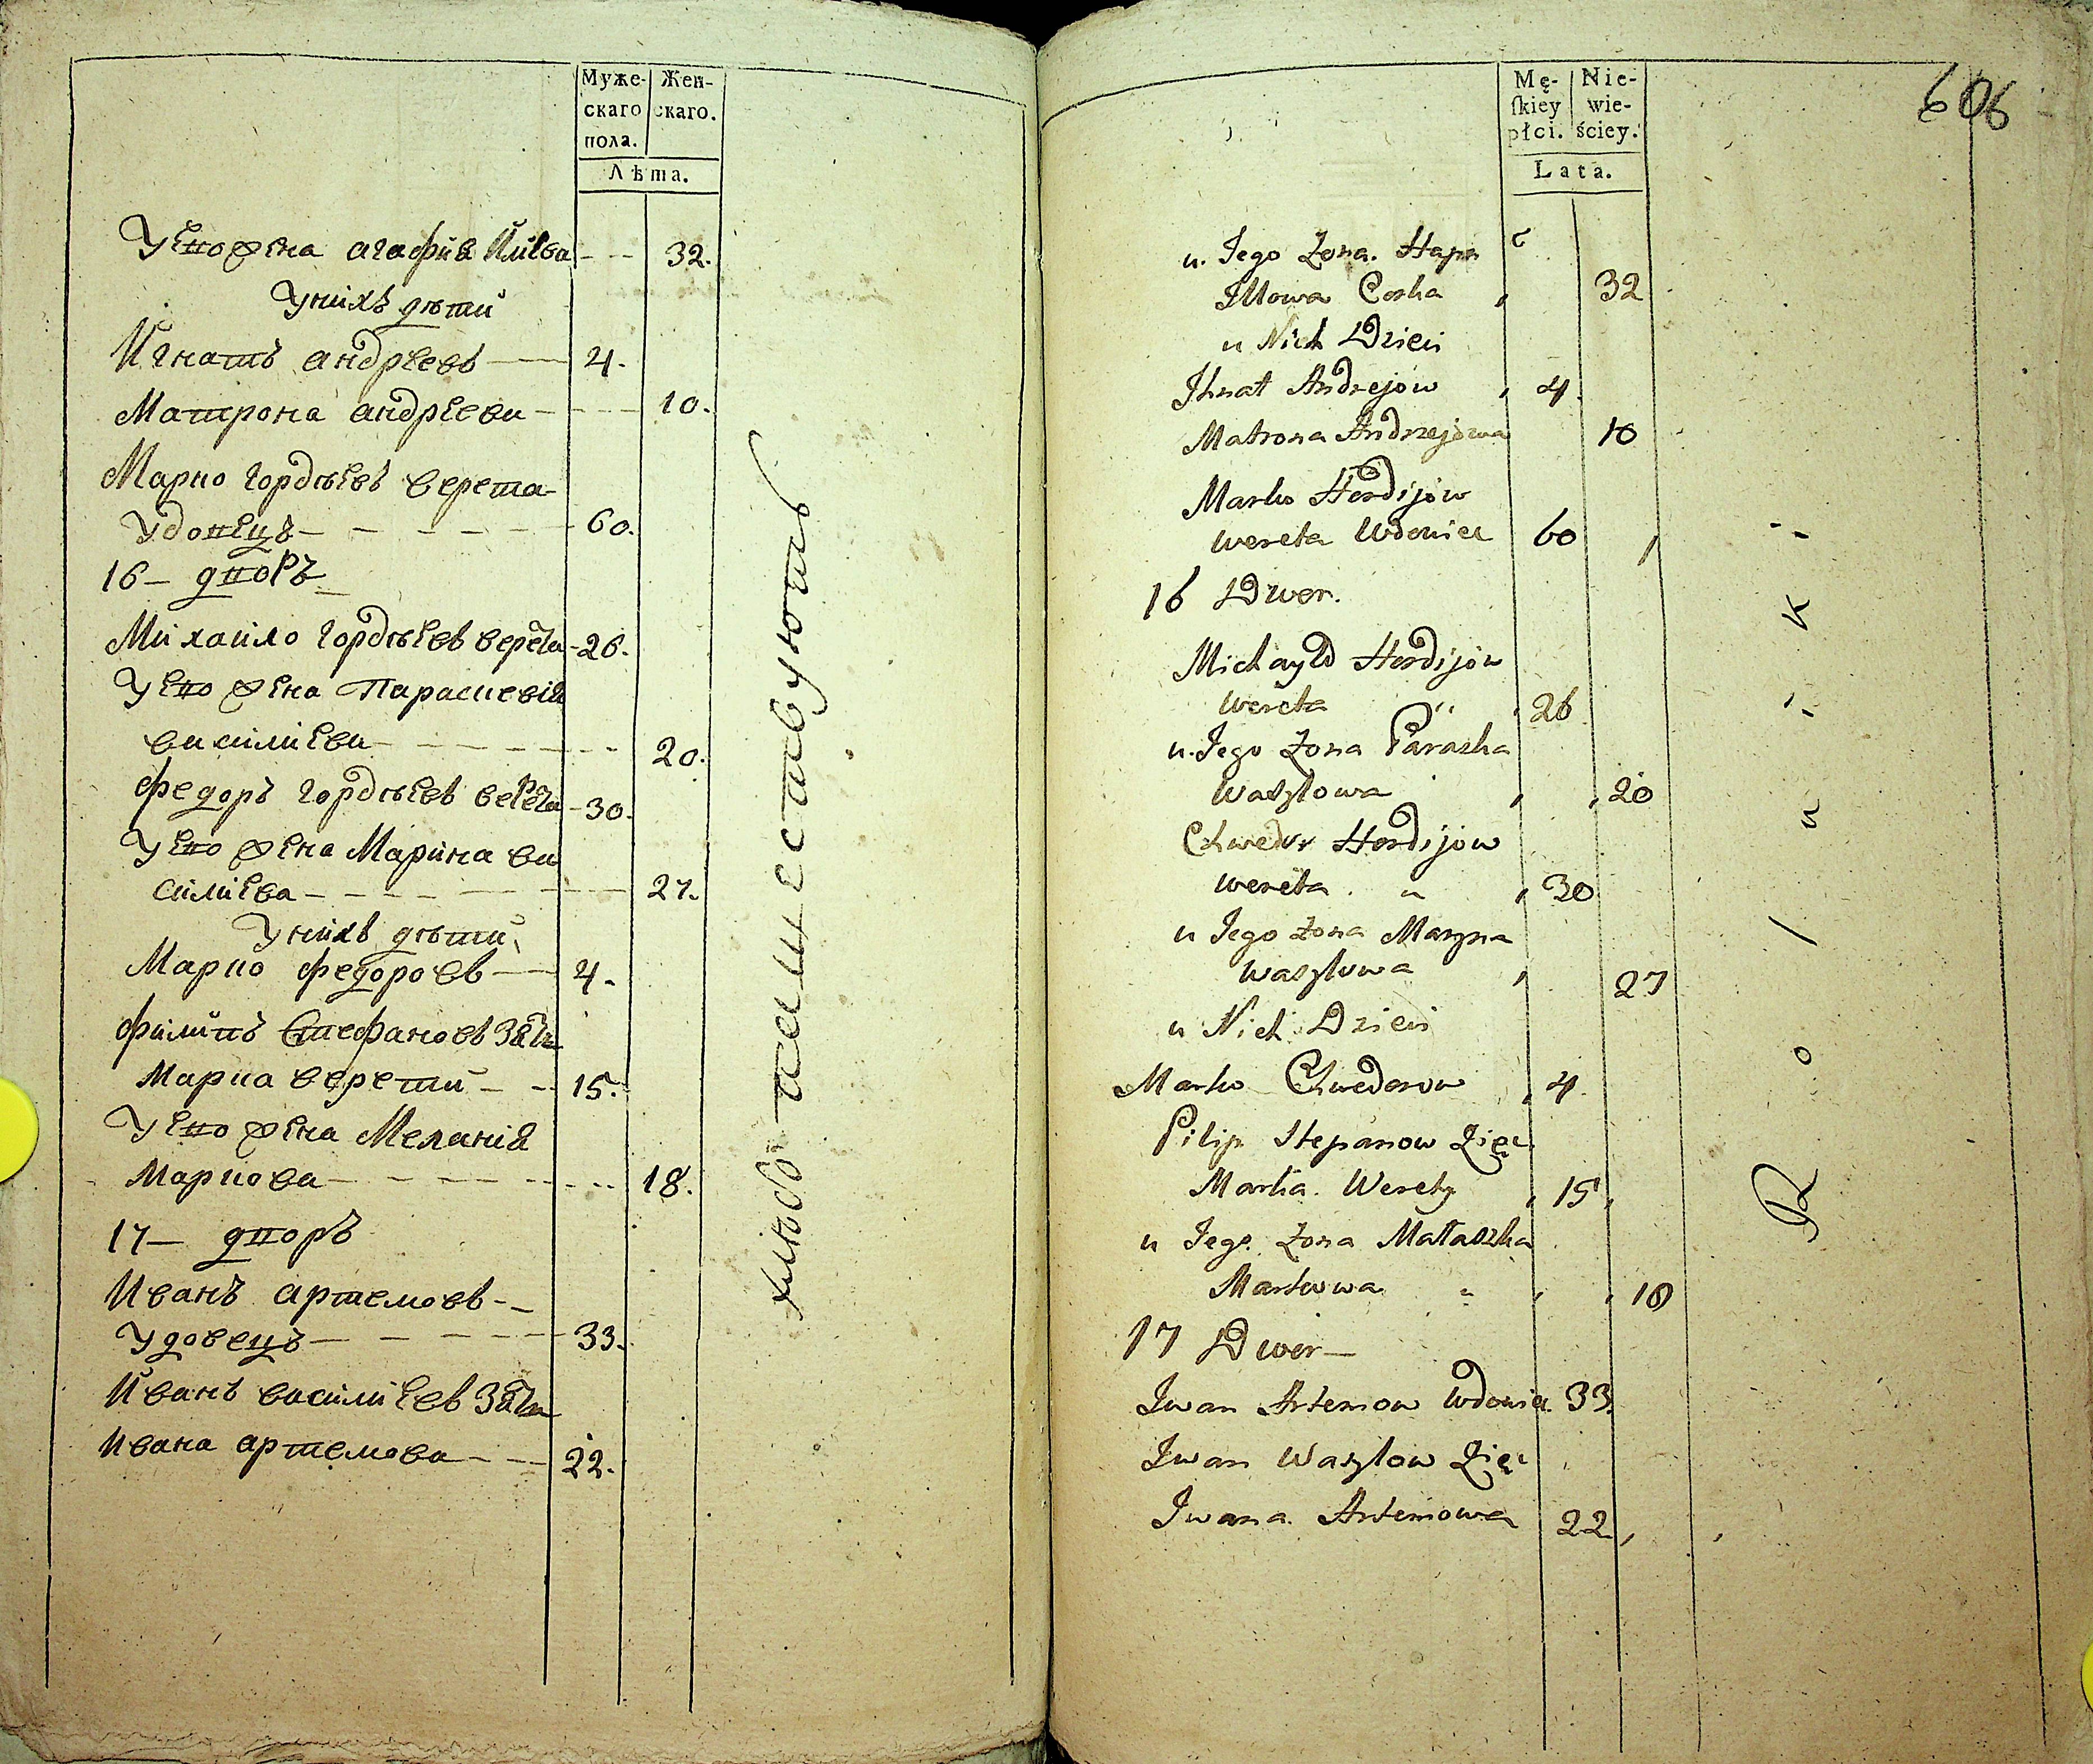 Муже- Жен-
скаго скаго.
пола.
Лѣта.
У его жена агафия Илиева 32.
У нихъ дѣти
Игнатъ андреевъ 4.
Матрона андреева 10.
Марко гордѣевъ верета
удовецъ 60.
16 дворъ
Михайло гордѣевъ верета 26.
У его жена Параскевія
василиева 20.
федоръ гордѣевъ верета 30.
У его жена Марина ва
силиева 27.
У нихъ дѣти
Марко федоровъ 4.
филипъ Стефановъ Зять
Марка верети 15.
У его жена Меланія
Маркова 18.
17 дворъ
Иванъ артемовъ
удовецъ 33.
Иванъ василиевъ Зять
Ивана артемова 22.
хлѣбопашествуютъ
Mę- Nie-
skiey wie-
płci. ściey.
Lata.
606
u Jego Żona Hapa
Jllowa Corka 32
u Nich Dzieci
Jhnat Andrejow 4
Matrona Andrzejowa 10
Marko Hordijow
Wereta Wdowiec 60
16 Dwor.
Michayło Hordijow
Wereta 26
u Jego Żona Paraska
Wasylowa 20
Chwedor Hordijow
Wereta 30
u Jego Żona Maryna
Wasylowa 27
u Nich Dzieci
Marko Chwedorow 4
Pilip Stepanow Zięć
Marka Werety 15
u Jego Żona Małaszka
Markowa 18
17 Dwor
Jwan Artemow Wdowiec 33.
Jwan Wasylow Zięć
Jwana Artemowa 22
Rolniki